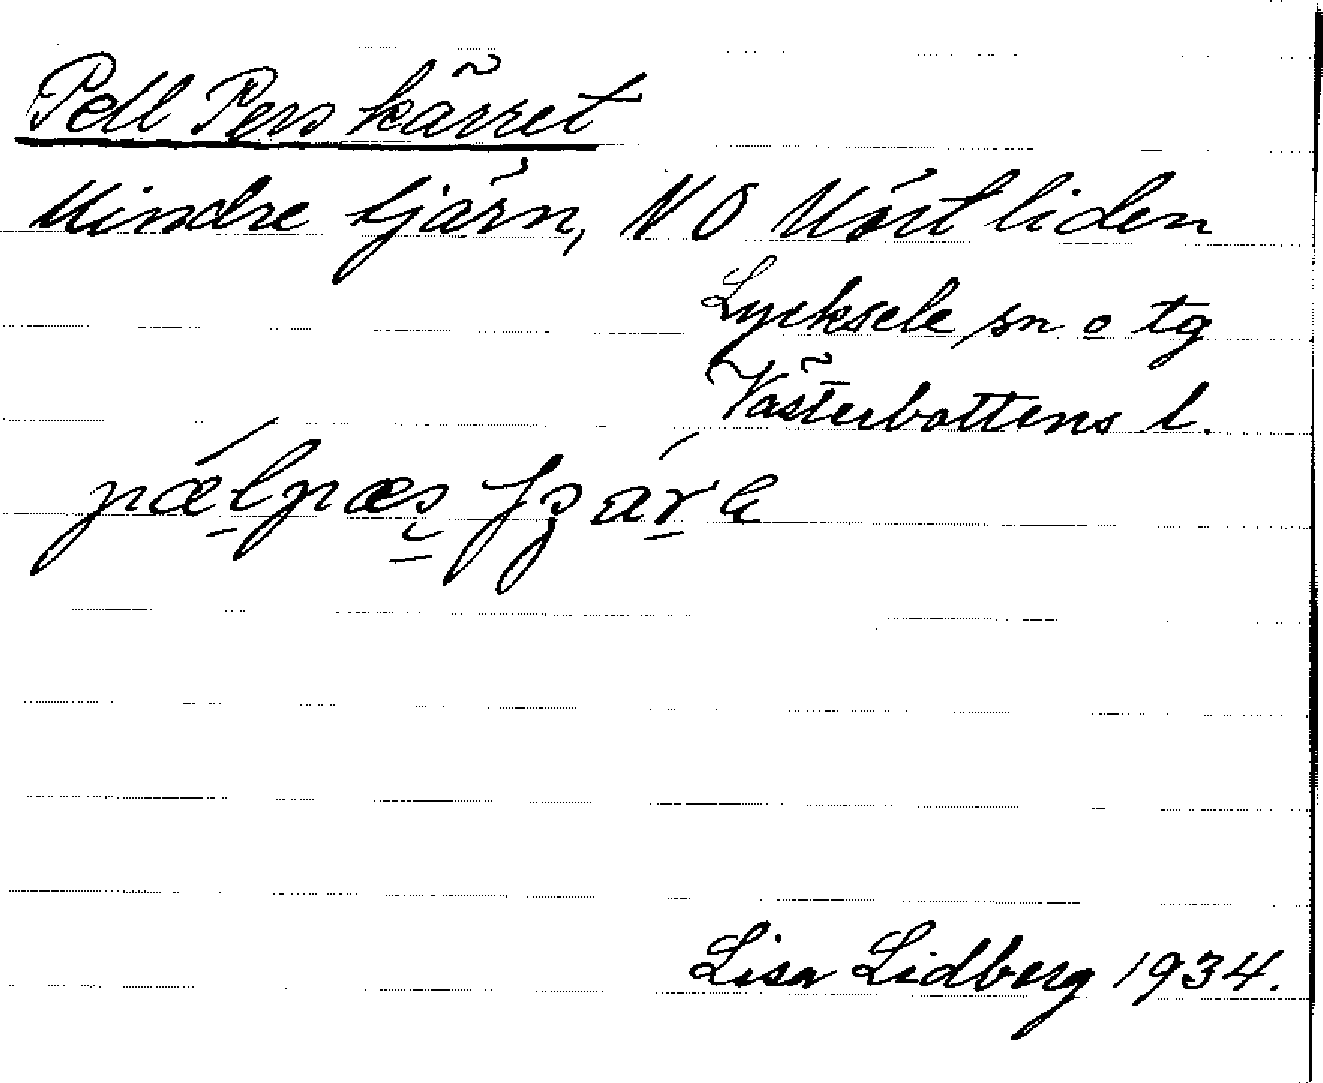 Pell Pers kärret
Mindre tjärn, NO Mörtliden
Lycksele sn o tg
Västerbottens l.
Lisa Lidberg 1934.